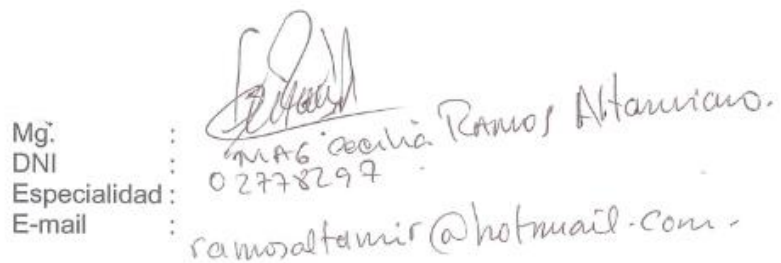 Mg. : MAG Cecilia Ramos Altamirano.
DNI : 02778297
Especialidad :
E-mail : ramosaltamir@hotmail.com.